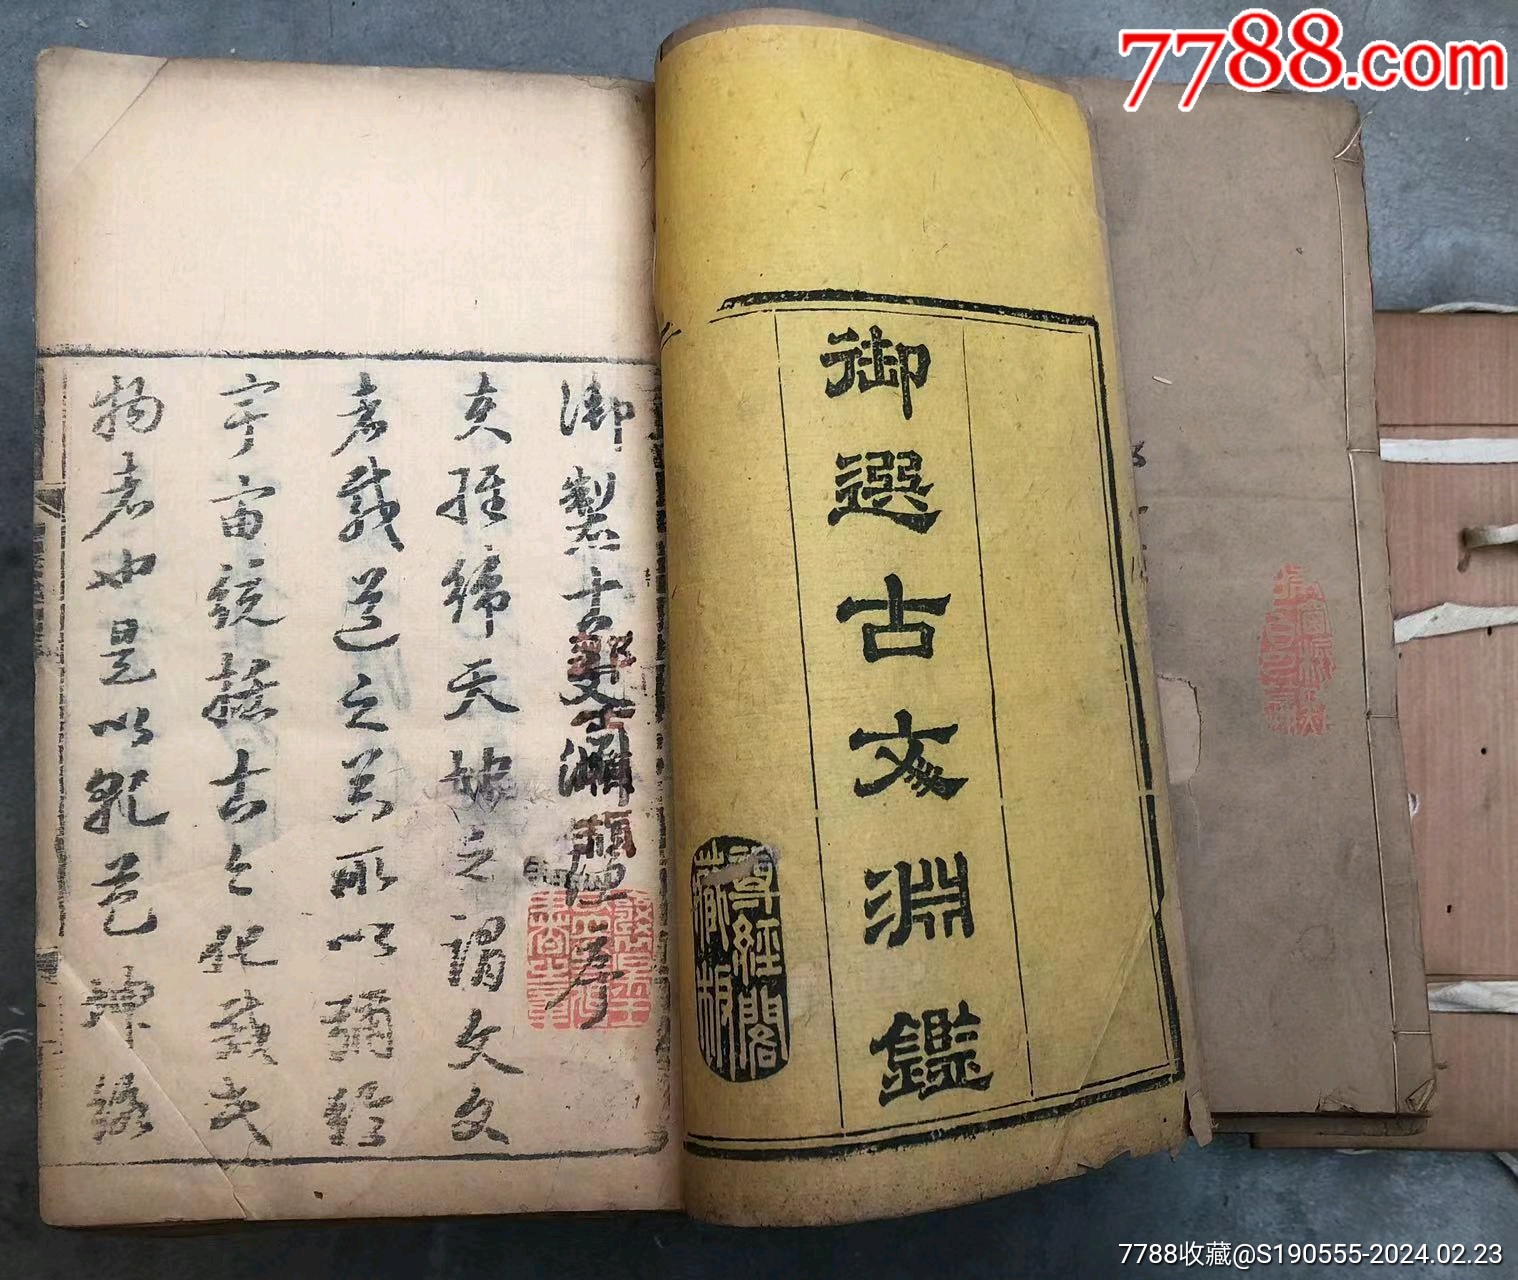 7788.com
御選古文淵鑑
尊經閣
藏板
御製古文淵鑒序
夫經緯天地之謂文文
者載道之器所以彌綸
宇宙統括古今化裁民
物者也是以乾苞坤絡
7788收藏@S190555-2024.02.23